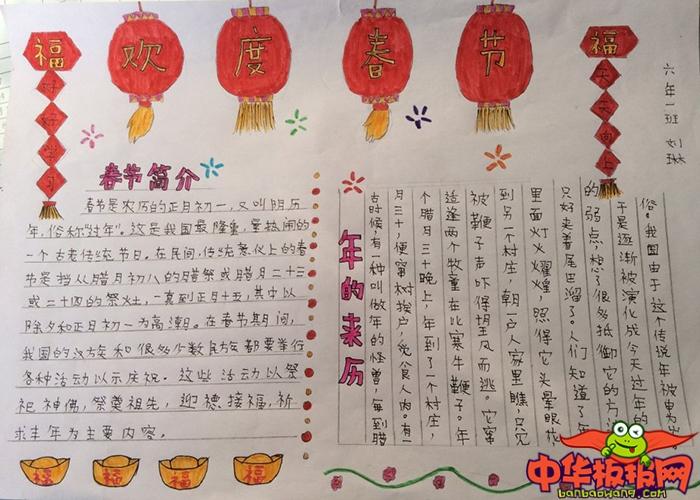 欢度春节
福
好好学习
福
天天向上
六年一班 刘琳
春节简介
春节是农历的正月初一,又叫阴历
年,俗称"过年"。这是我国最隆重,最热闹的
一个古老传统节日。在民间,传统意义上的春
节是指从腊月初八的腊祭或腊月二十三
或二十四的祭灶,一直到正月十五,其中以
除夕和正月初一为高潮。在春节期间,
我国的汉族和很多少数民族都要举行
各种活动以示庆祝。这些活动以祭
祀神佛,祭奠祖先,迎禧接福,祈
求丰年为主要内容。
福 福 福 福
年的来历
古时候,有一种叫做年的怪兽,每到腊
月三十,便窜村挨户,觅食人肉。有一
个腊月三十晚上,年到了一个村庄,
适逢两个牧童在比赛牛鞭子。年
被鞭子声吓得望风而逃。它窜
到另一个村庄,朝一户人家里瞧,只见
里面灯火耀煌,照得它头晕眼花
只好夹着尾巴溜了。人们知道了年
的弱点,想了很多抵御它的方法
于是逐渐被演化成今天过年的
俗。我国由于这个传说年被
中华板报网
banbaowang.com